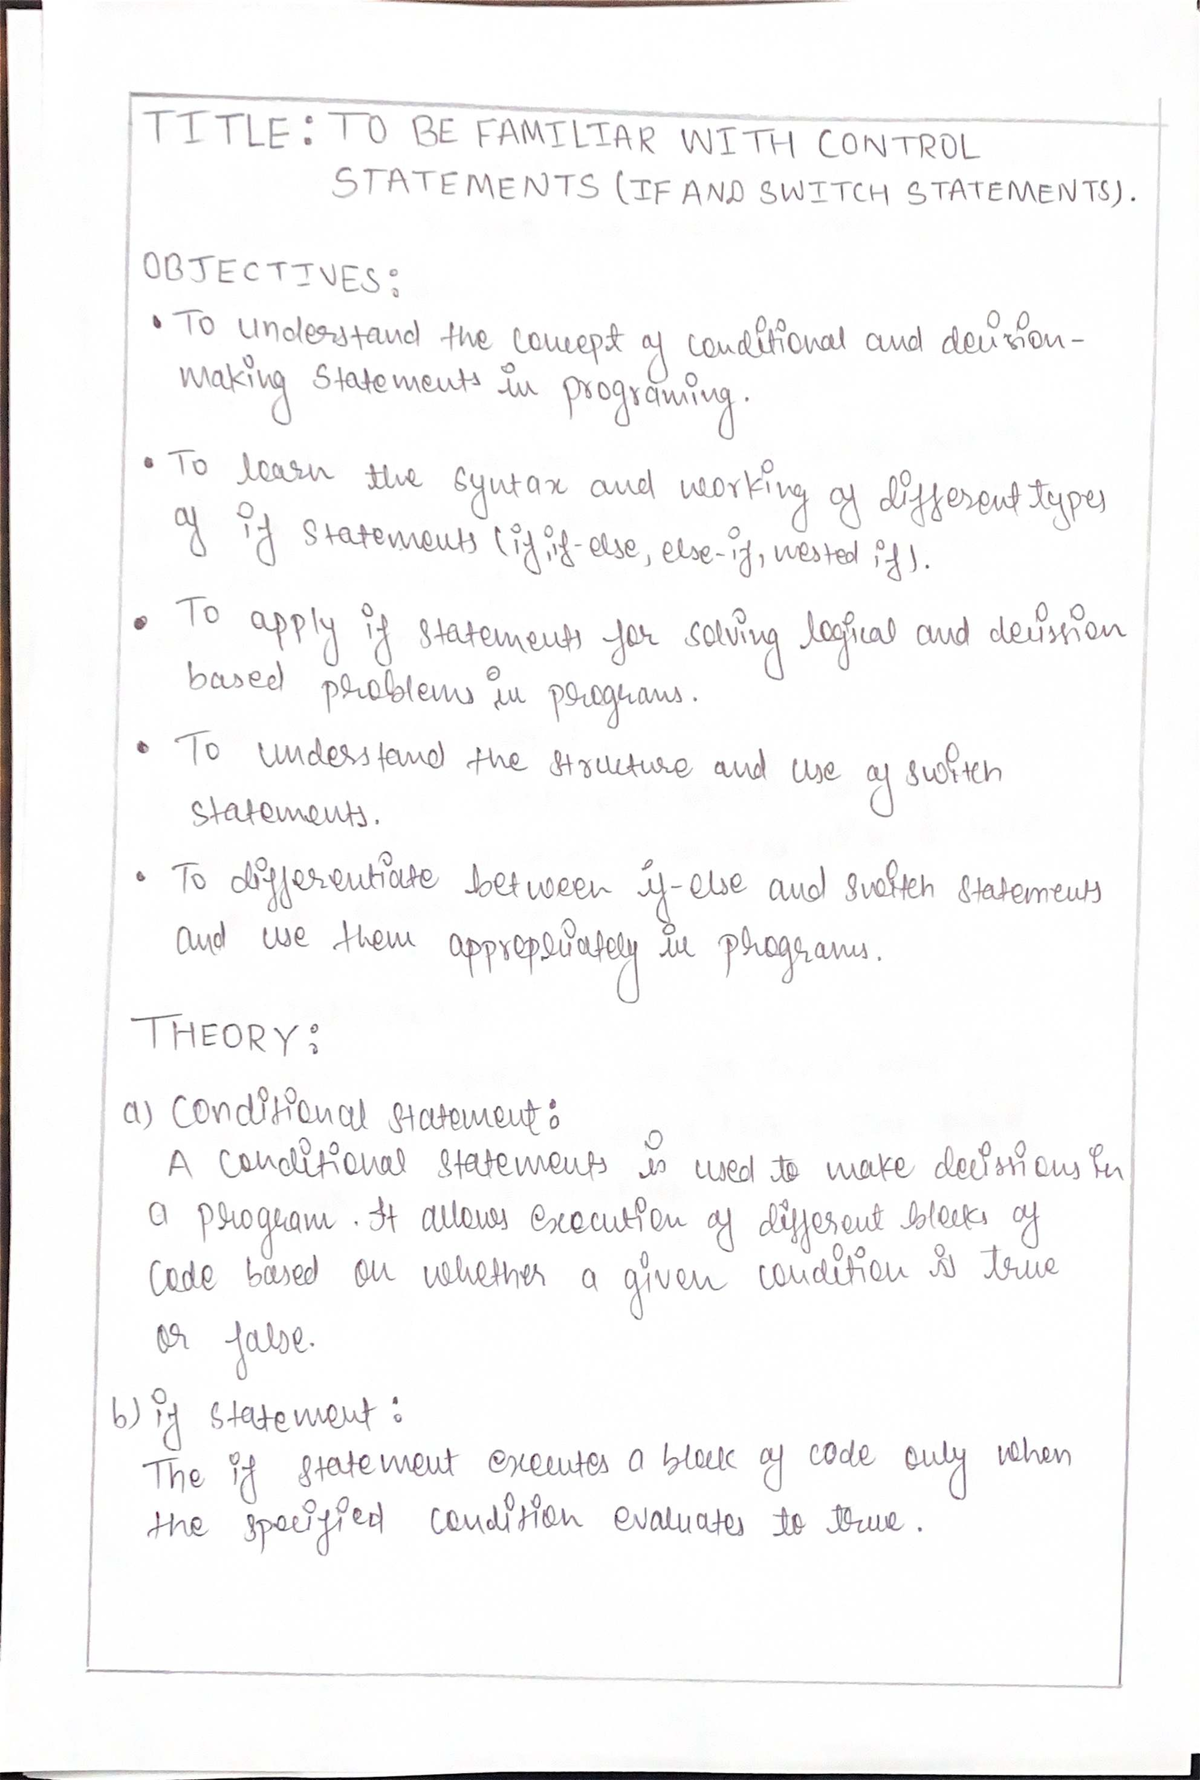 TITLE: TO BE FAMILIAR WITH CONTROL
STATEMENTS (IF AND SWITCH STATEMENTS).
OBJECTIVES:
• To understand the concept of conditional and decision-
making statements in programing.
• To learn the syntax and working of different types
of if statements (if, if-else, else-if, nested if).
• To apply if statements for solving logical and decission
based problems in programs.
• To understand the structure and use of switch
statements.
• To differentiate between if-else and switch statements
and use them appropriately in programs.
THEORY:
a) Conditional statement:
A conditional statements is used to make decissions in
a program. It allows execution of different blocks of
code based on whether a given condition is true
or false.
b) if statement:
The if statement executes a block of code only when
the specified condition evaluates to true.